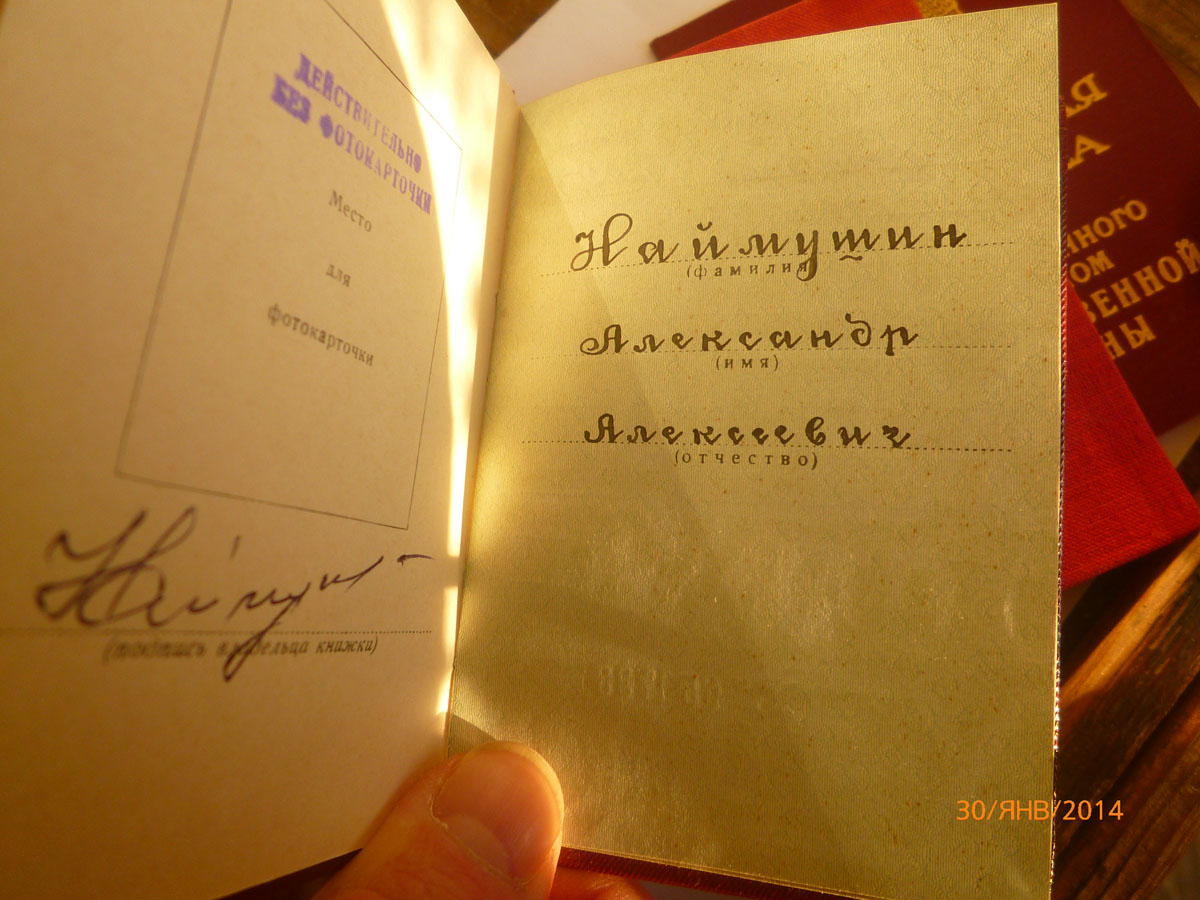 ДЕЙСТВИТЕЛЬНО
БЕЗ ФОТОКАРТОЧКИ
Место
для
фотокарточки
(подпись владельца книжки)
Наймушин
(фамилия)
Александр
(имя)
Алексеевич
(отчество)
30/ЯНВ/2014